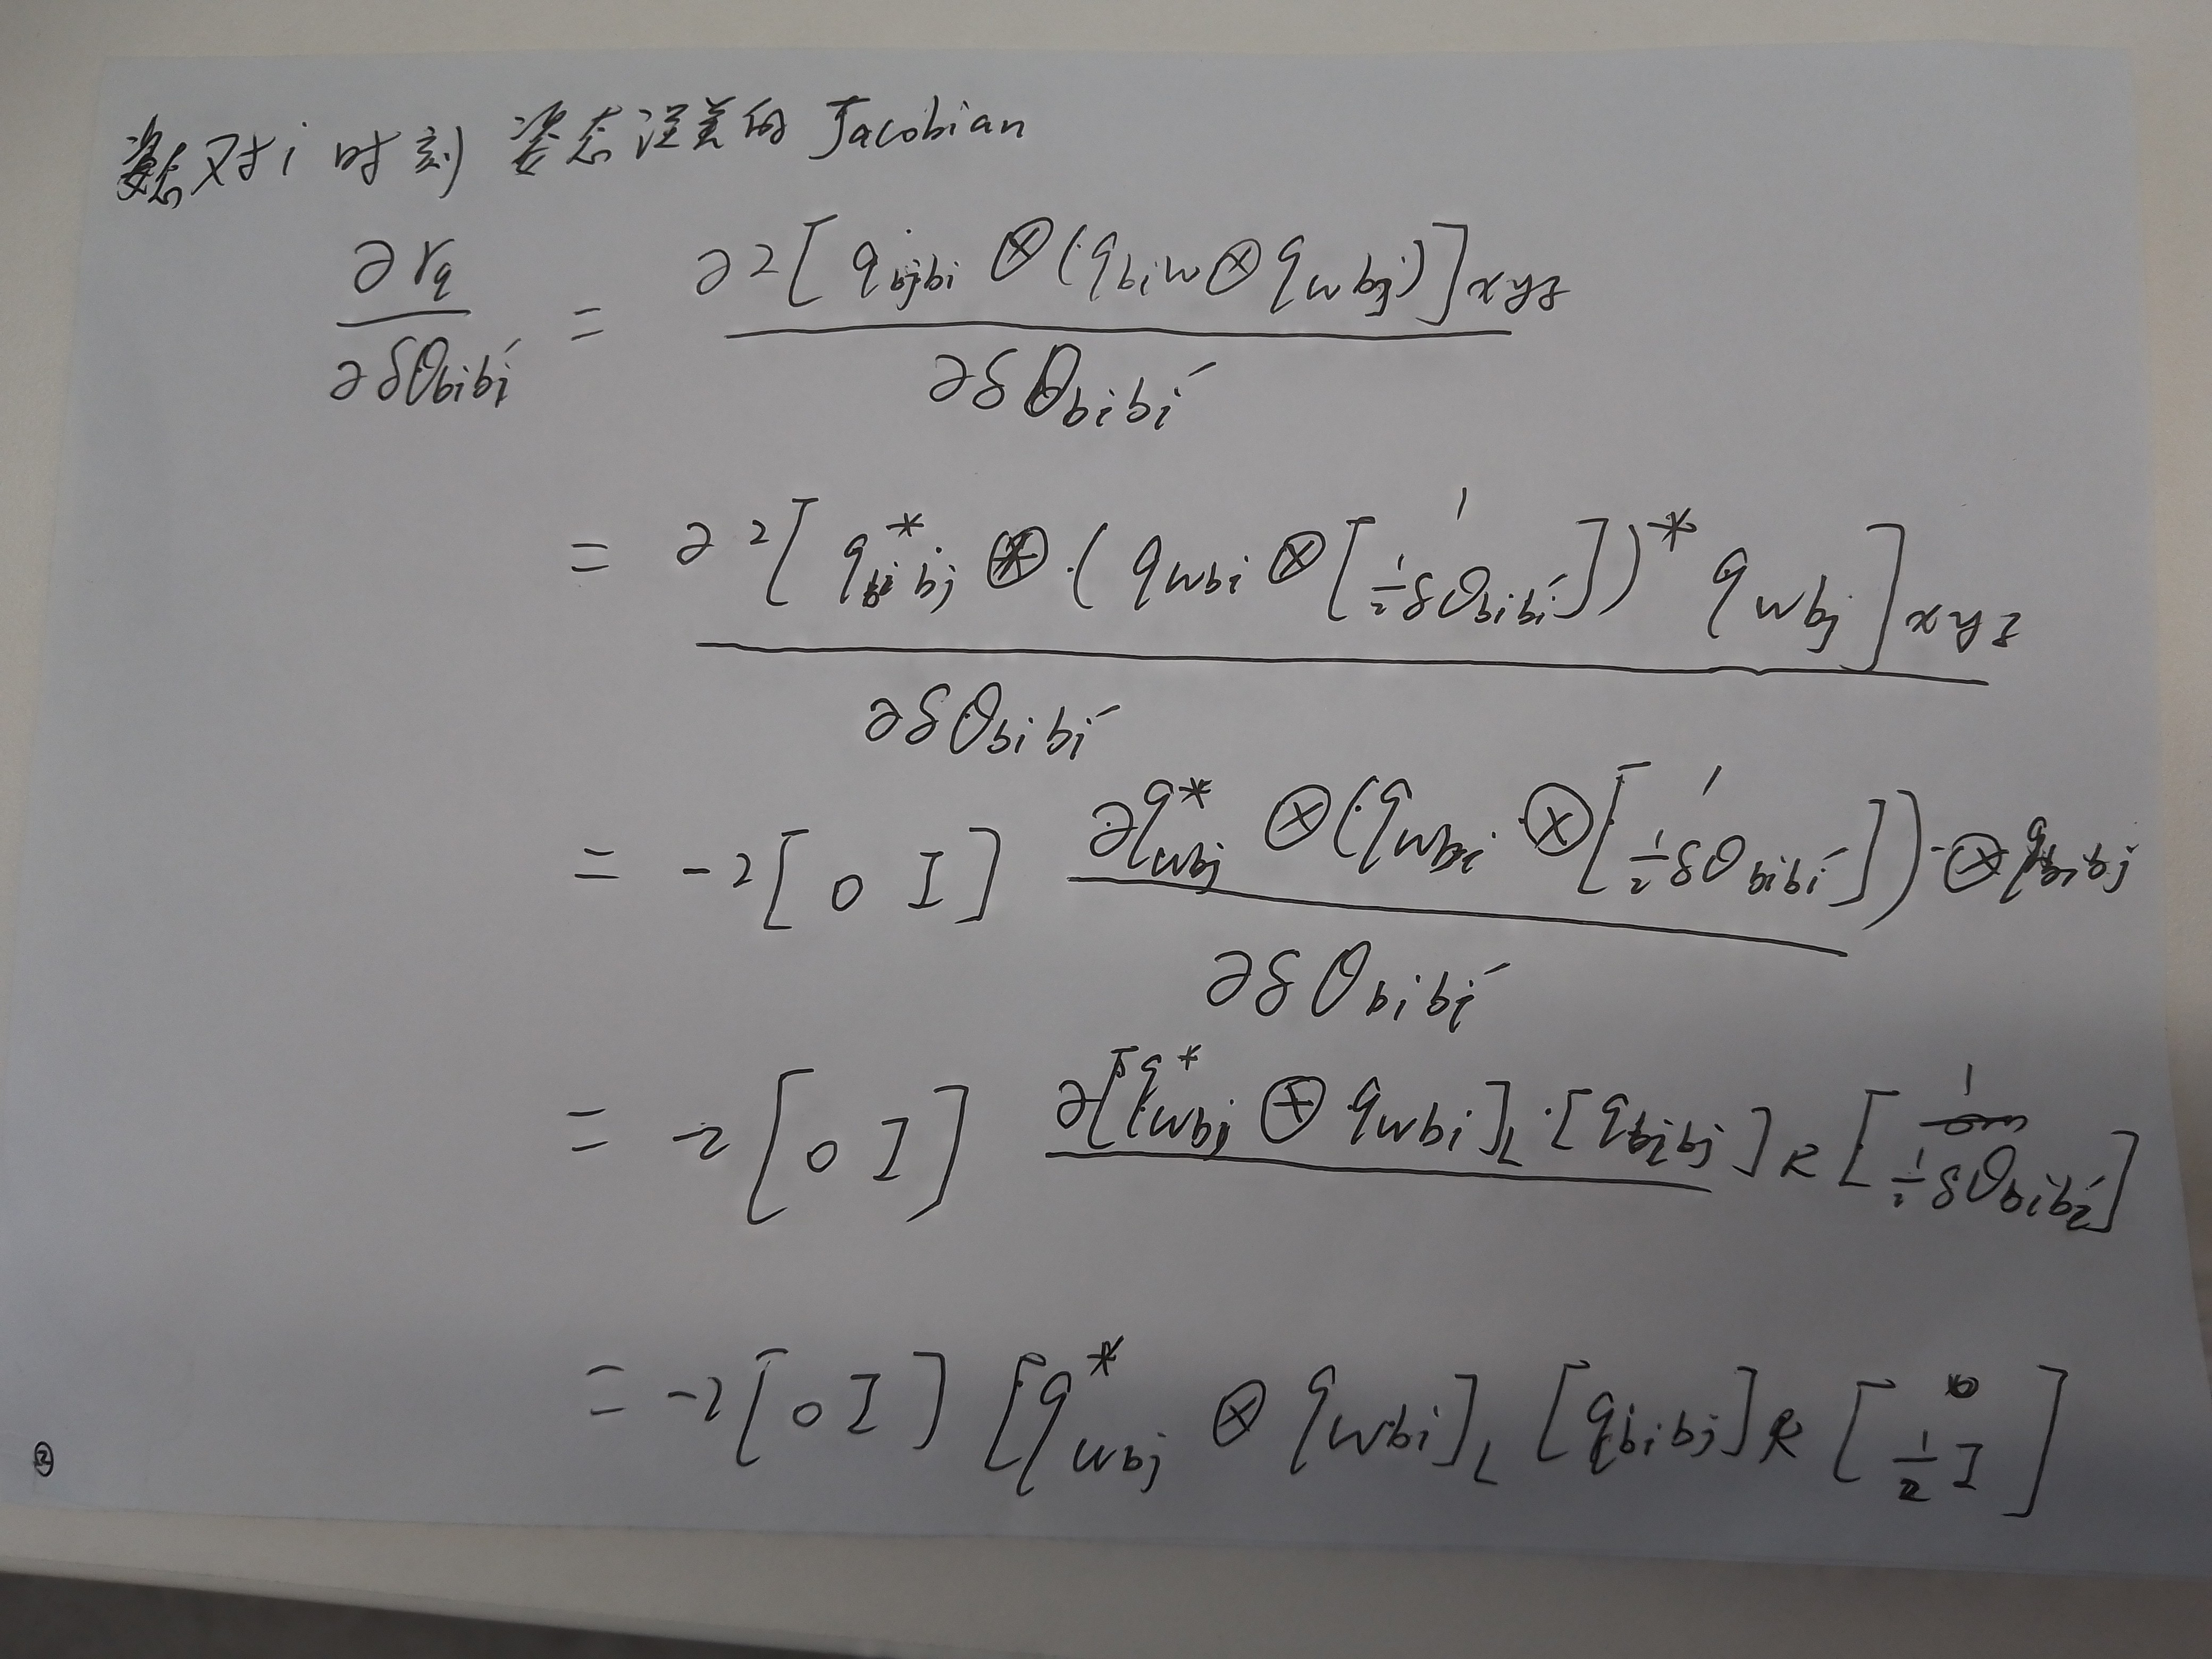 姿态对i时刻 姿态误差的 Jacobian
∂r_q / ∂δθ_{bibi′} = ∂2[q_{bjbi} ⊗ (q_{biw} ⊗ q_{wbj})]_{xyz} / ∂δθ_{bibi′}
= ∂2[q*_{bibj} ⊗ (q_{wbi} ⊗ [1; ½δθ_{bibi′}])* q_{wbj}]_{xyz} / ∂δθ_{bibi′}
= -2[0 I] ∂q*_{wbj} ⊗ (q_{wbi} ⊗ [1; ½δθ_{bibi′}]) ⊗ q_{bibj} / ∂δθ_{bibi′}
= -2[0 I] ∂[q*_{wbj} ⊗ q_{wbi}]_L · [q_{bibj}]_R [1; ½δθ_{bibi′}]
= -2[0 I] [q*_{wbj} ⊗ q_{wbi}]_L [q_{bibj}]_R [0; ½I]
②